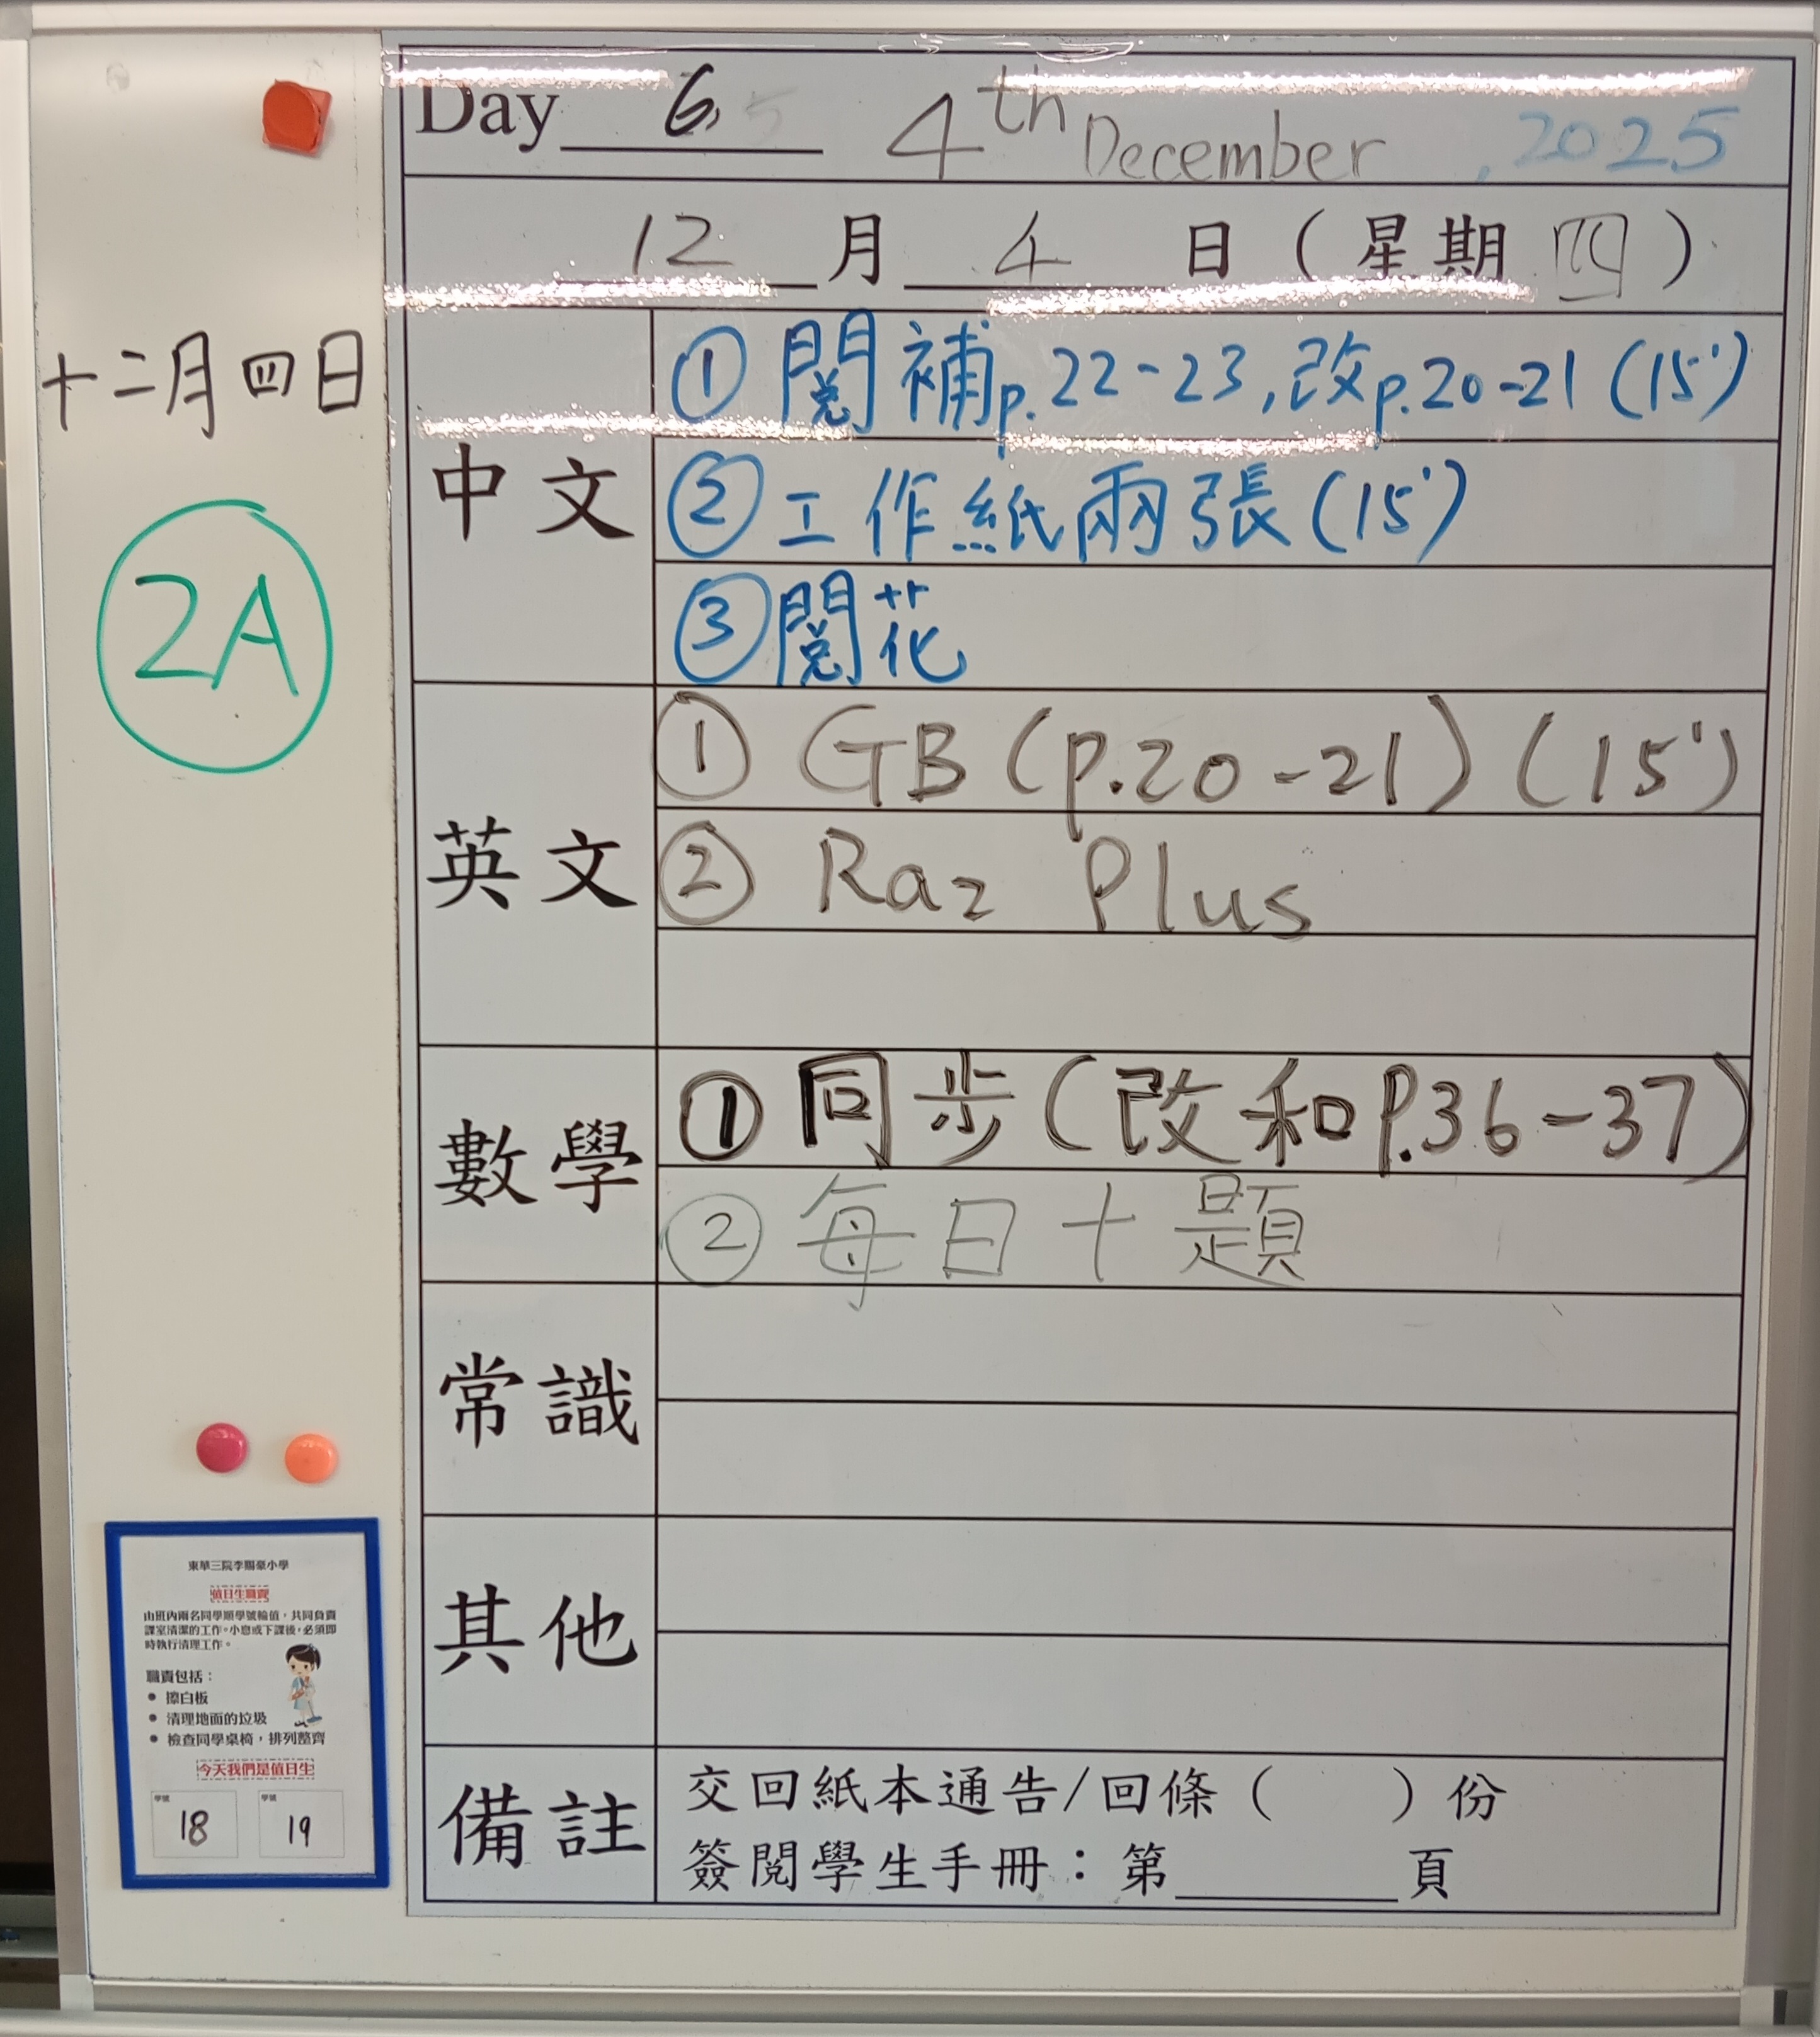 Day 6 4th December, 2025
12月4日(星期四)
十二月四日
2A
中文
①閱補p.22-23,改p.20-21(15')
②工作紙兩張(15')
③閱花
英文
①GB(p.20-21)(15')
②Raz Plus
數學
①同步(改和P.36-37)
②每日十題
常識
其他
備註
交回紙本通告/回條( )份
簽閱學生手冊:第______頁
東華三院李賜豪小學
值日生職責
由班內兩名同學順學號輪值,共同負責
課室清潔的工作。小息或下課後,必須即
時執行清理工作。
職責包括:
• 擦白板
• 清理地面的垃圾
• 檢查同學桌椅,排列整齊
今天我們是值日生
學號 學號
18 19